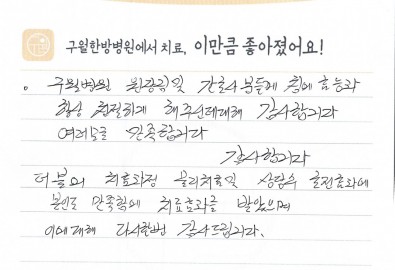 구월한방병원에서 치료, 이만큼 좋아졌어요!
구월병원 원장님및 간호사분들께 침에 효능과
항상 친절하게 해주신데대해 감사합니다
여러모로 만족합니다
감사합니다
더불어 치료과정 물리치료및 상담후 호전효과에
본인도 만족함에 치료효과를 받았으며
이에대해 다시한번 감사드립니다.